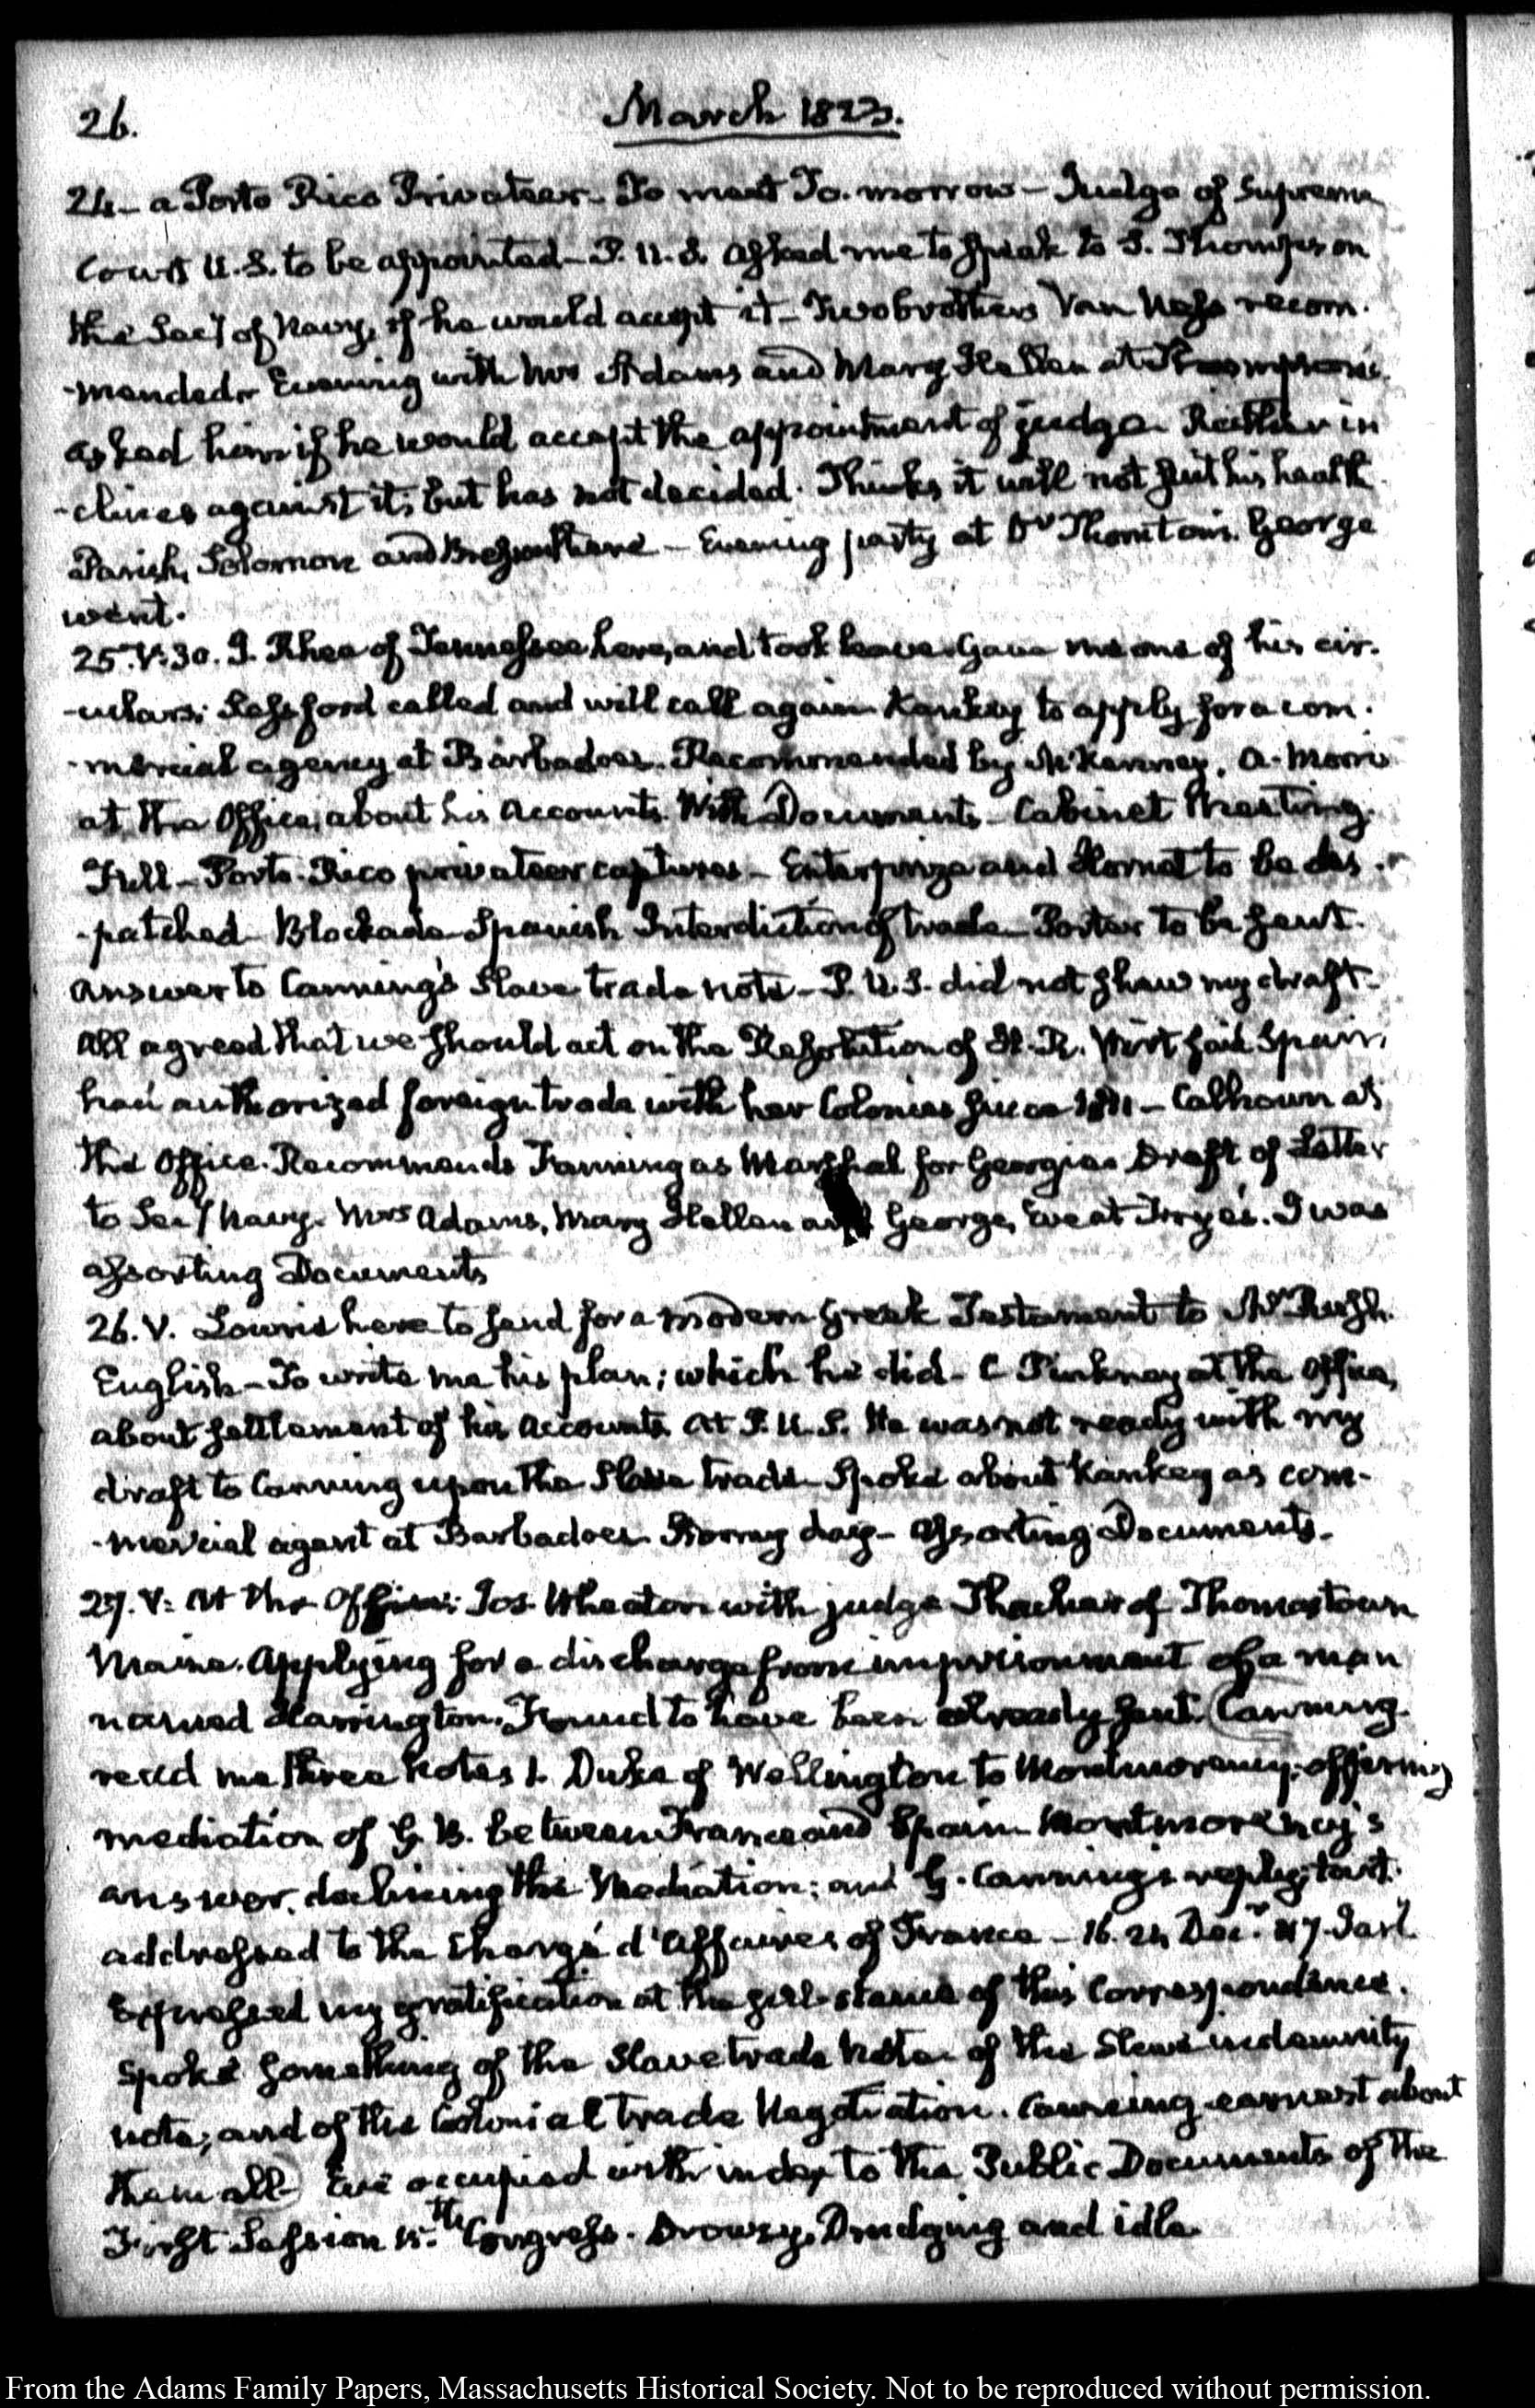 26.
March 1823.
24— a Porto Rico Privateer— To meet To-morrow— Judge of Supreme
Court U.S. to be appointed— P. U. S. asked me to speak to S. Thompson
the Secy of Navy, if he would accept it— Two brothers Van Ness recom-
-mended. Evening with Mrs Adams and Mary Hellen at Thompson's.
asked him if he would accept the appointment of judge. Rather in
-clines against it; but has not decided. Thinks it will not suit his health.
Parish, Solomon and — Evening party at Dr Thornton's. George
went.
25. V:30. J. Rhea of Tennessee here, and took leave. Gave me one of his cir-
-culars. Lassford called and will call again. Kankey to apply for a com-
-mercial agency at Barbadoes. Recommended by McKenney. A. Morris
at the Office, about his Accounts. With Documents— Cabinet Meeting.
Full— Porto-Rico privateer captures— Enterprize and Hornet to be des-
-patched. Blockade. Spanish Interdiction of trade— Porter to be sent.
Answer to Canning's Slave trade note— P. U. S. did not shew my draft—
All agreed that we should act on the Resolution of H. R. Wirt said Spain
had authorized foreign trade with her Colonies since 1811— Calhoun at
the Office. Recommends Fanning as Marshal for Georgia. Draft of Letter
to Secy Navy. Mrs Adams, Mary Hellen and George, Eve at Frye's. I was
assorting Documents
26. V. Lowrie here to send for a modern Greek Testament to Mr Rush.
English— To write me his plan; which he did— C Pinkney at the Office,
about settlement of his Accounts. At P. U. S. He was not ready with my
draft to Canning upon the Slave trade— Spoke about Kankey as com-
-mercial agent at Barbadoes. Stormy day— Assorting Documents.
27. V: At the Office: Jos. Wheaton with judge Thacher of Thomastown
Maine. Applying for a discharge from imprisonment of a man
named Harrington. Found to have been already sent. Canning
read me three Notes 1. Duke of Wellington to Montmorency; offering
mediation of G. B. between France and Spain— Montmorency's
answer, declining the Mediation; and G. Canning's reply; tart.
addressed to the Chargé d'Affaires of France— 16. 24 Decr. 17 Jany.
Expressed my gratification at the substance of this Correspondence.
Spoke something of the Slave trade Note— of the Slave indemnity
note; and of the Colonial trade Negotiation. Canning earnest about
them all— Eve occupied with index to the Public Documents of the
First Session 15th Congress. Drowsy, Drudging and idle.
From the Adams Family Papers, Massachusetts Historical Society. Not to be reproduced without permission.